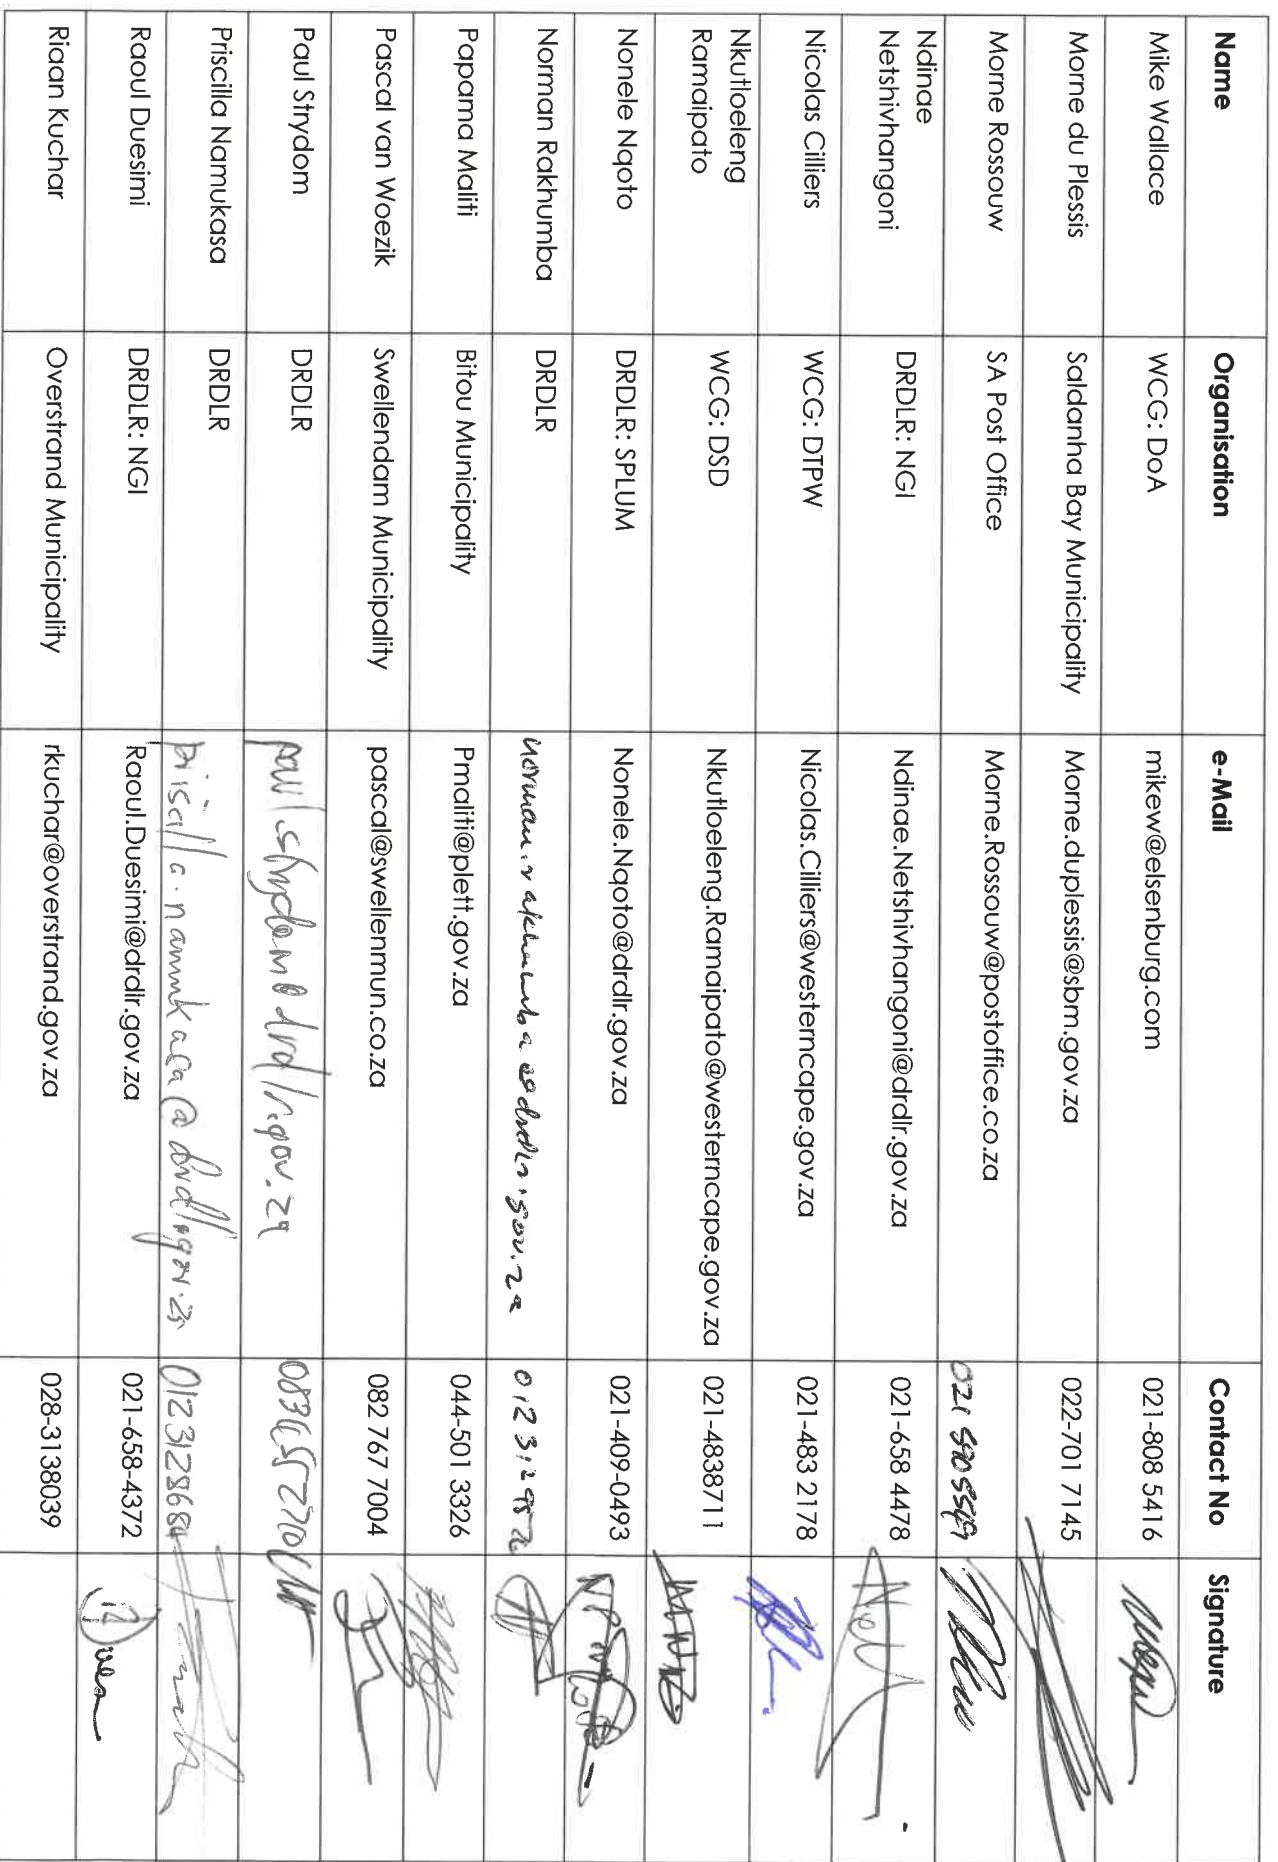 Name Organisation e-Mail Contact No Signature
Mike Wallace WCG: DoA mikew@elsenburg.com 021-808 5416
Morne du Plessis Saldanha Bay Municipality Morne.duplessis@sbm.gov.za 022-701 7145
Morne Rossouw SA Post Office Morne.Rossouw@postoffice.co.za
Ndinae
Netshivhangoni DRDLR: NGI Ndinae.Netshivhangoni@drdlr.gov.za 021-658 4478
Nicolas Cilliers WCG: DTPW Nicolas.Cilliers@westerncape.gov.za 021-483 2178
Nkutloeleng
Ramaipato WCG: DSD Nkutloeleng.Ramaipato@westerncape.gov.za 021-4838711
Nonele Nqoto DRDLR: SPLUM Nonele.Nqoto@drdlr.gov.za 021-409-0493
Norman Rakhumba DRDLR norman.rakhumba@drdlr.gov.za
Papama Maliti Bitou Municipality Pmaliti@plett.gov.za 044-501 3326
Pascal van Woezik Swellendam Municipality pascal@swellenmun.co.za 082 767 7004
Paul Strydom DRDLR paul.strydom@drdlr.gov.za 0836552710
Priscilla Namukasa DRDLR priscilla.namukasa@drdlr.gov.za 0123128684
Raoul Duesimi DRDLR: NGI Raoul.Duesimi@drdlr.gov.za 021-658-4372
Riaan Kuchar Overstrand Municipality rkuchar@overstrand.gov.za 028-3138039